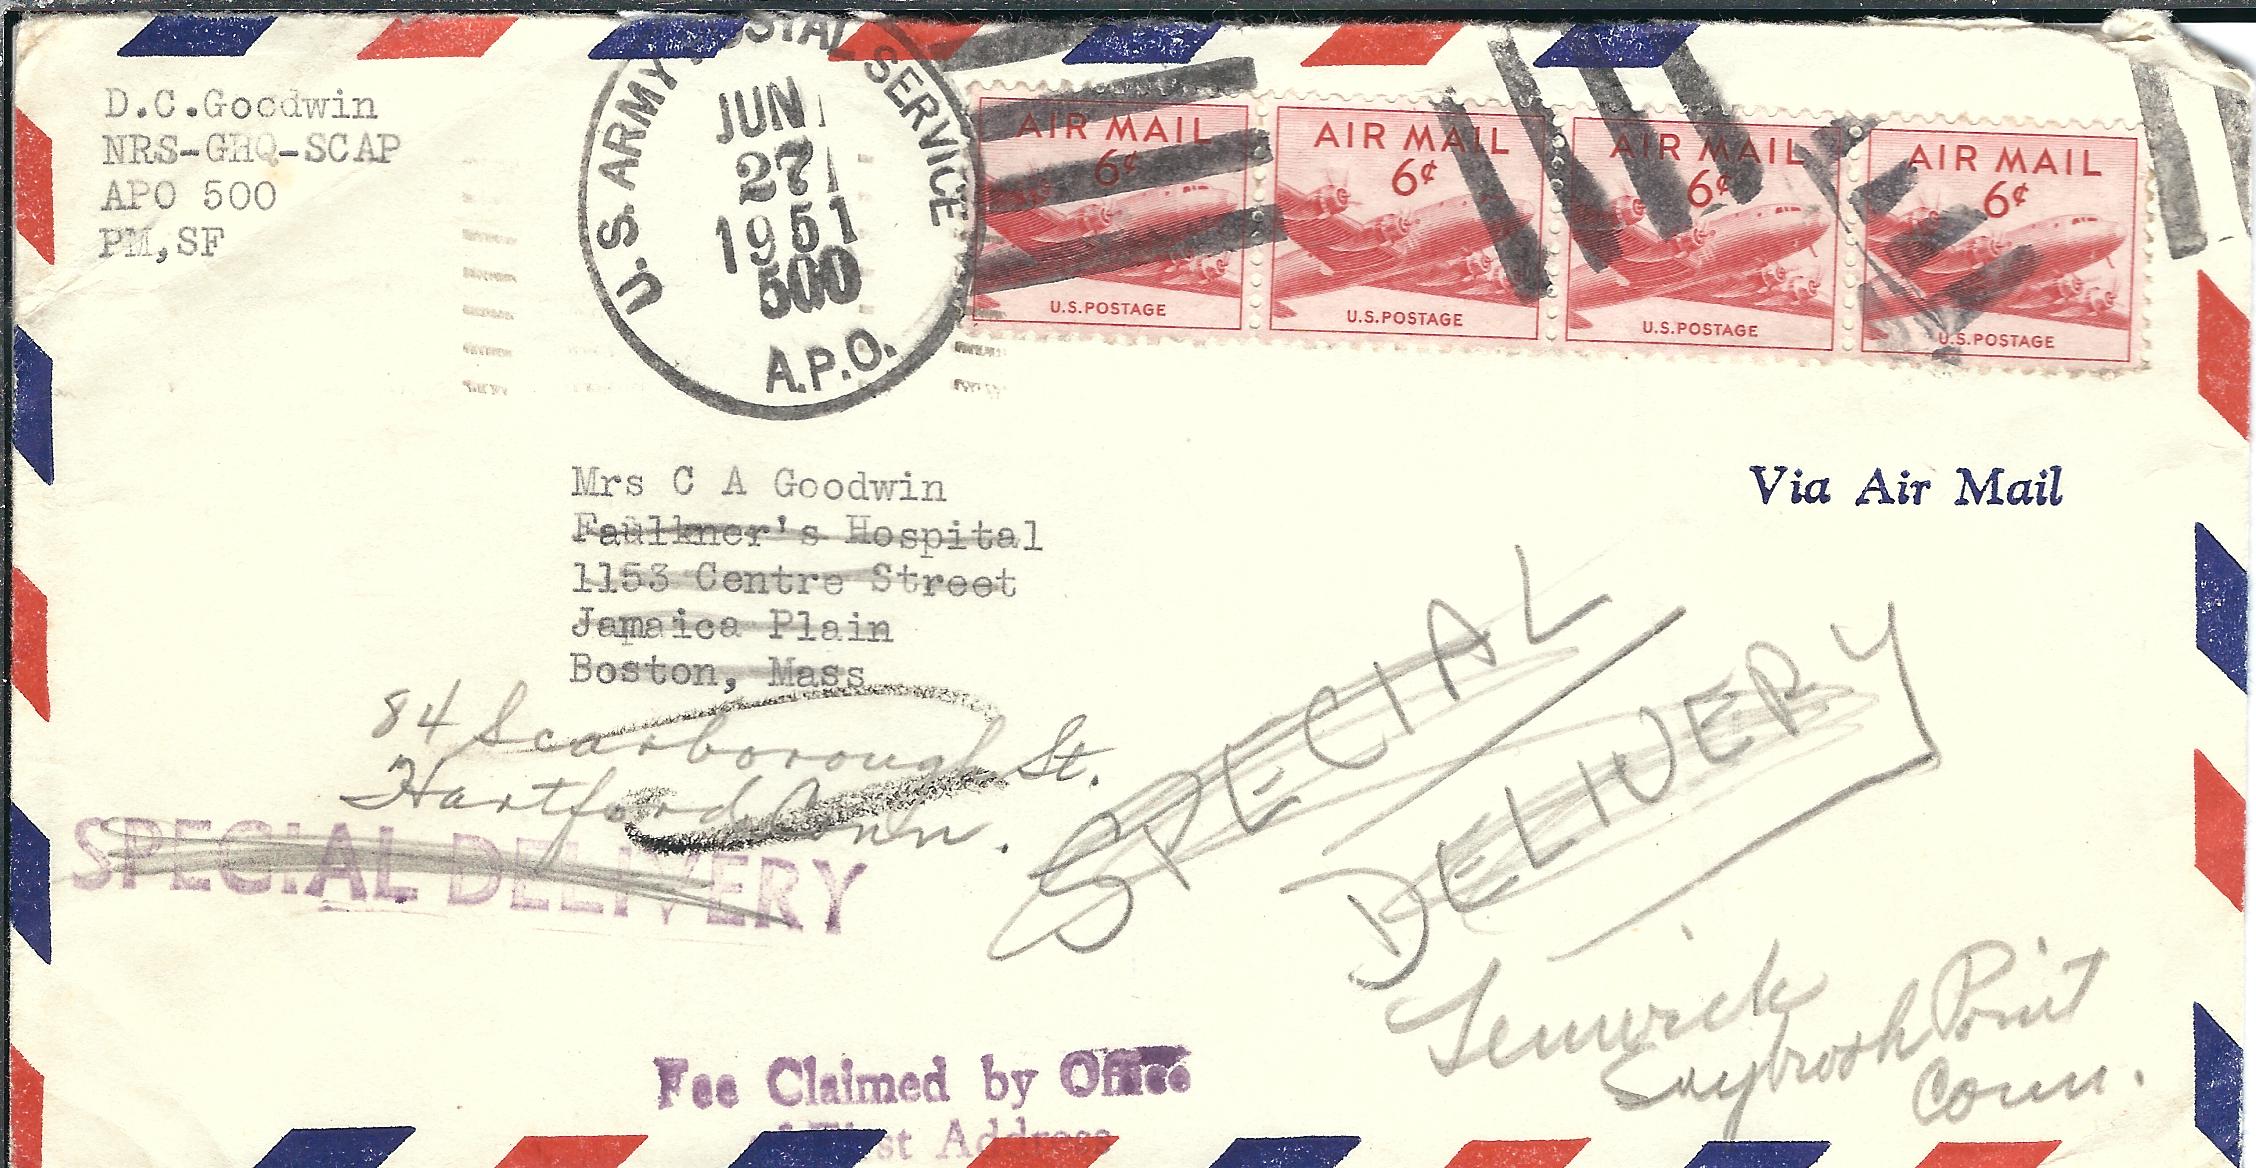 D.C.Goodwin
NRS-GHQ-SCAP
APO 500
PM,SF
U.S. ARMY POSTAL SERVICE
JUN
27
1951
500
A.P.O.
AIR MAIL
6¢
U.S.POSTAGE
AIR MAIL
6¢
U.S.POSTAGE
AIR MAIL
6¢
U.S.POSTAGE
AIR MAIL
6¢
U.S.POSTAGE
Via Air Mail
Mrs C A Goodwin
Faulkner's Hospital
1153 Centre Street
Jamaica Plain
Boston, Mass
84 Scarborough St.
Hartford Conn.
SPECIAL DELIVERY
SPECIAL
DELIVERY
Fenwick
Saybrook Point
Conn.
Fee Claimed by Office
of First Address